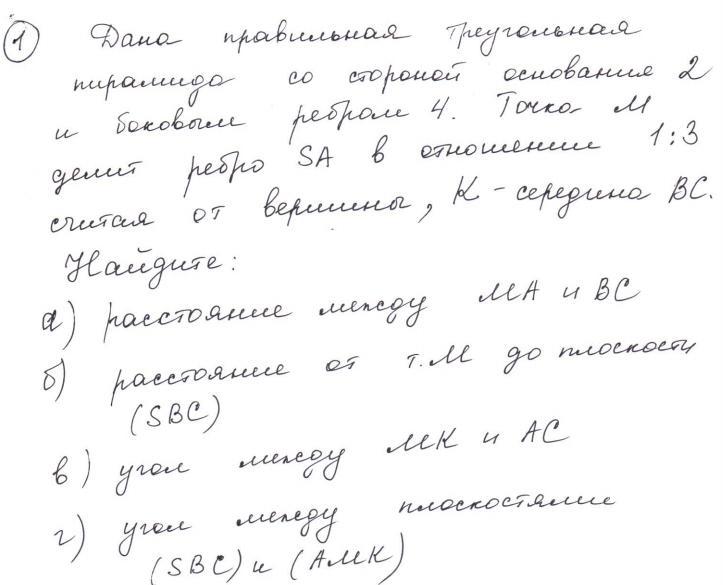 1 Дана правильная треугольная
пирамида со стороной основания 2
и боковым ребром 4. Точка М
делит ребро SA в отношении 1:3
считая от вершины, К – середина ВС.
Найдите:
а) расстояние между МА и ВС
б) расстояние от т.М до плоскости
(SBC)
в) угол между МК и АС
г) угол между плоскостями
(SBC) и (АМК)